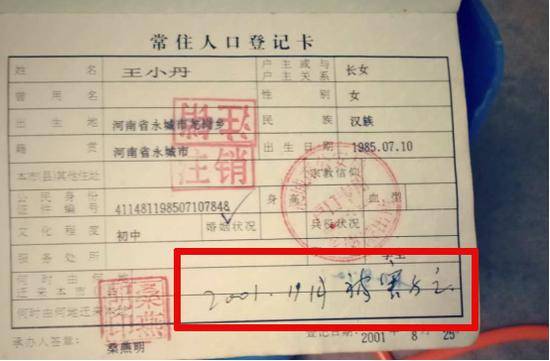 常住人口登记卡
姓名 王小丹 户主或与户主关系 长女
曾用名 性别 女
出生地 河南省永城市龙岗乡 民族 汉族
籍贯 河南省永城市 出生日期 1985.07.10
本市(县)其他住址 宗教信仰
公民身份证件编号 411481198507107848 身高 血型
文化程度 初中 婚姻状况 兵役状况
服务处所
何时由何地迁来本市
何时由何地迁来本址
承办人签章 桑燕明 登记日期:2001年8月25
注销
桑燕明印
2001.